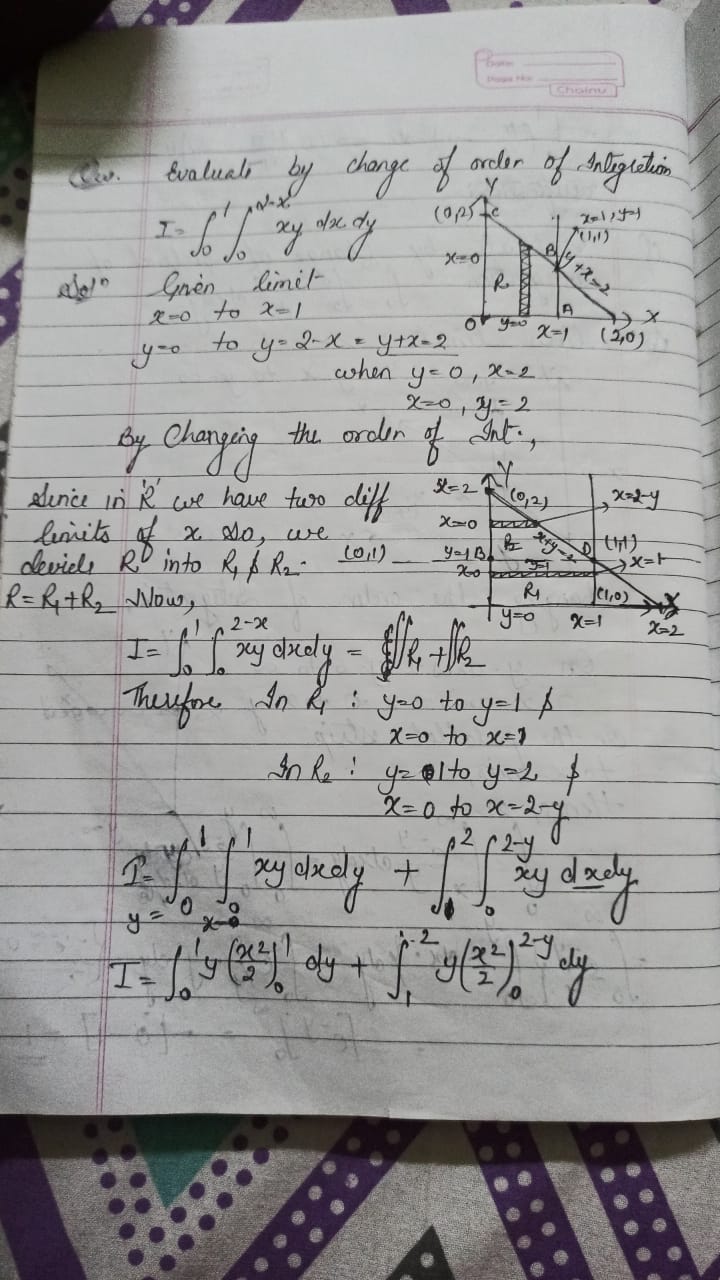 Date
Page No.
Chainu
Qu. Evaluate by change of order of Integration
I = ∫₀¹ ∫₀^{2-x} xy dx dy
Y
(0,2) C
x=0
R
B
x=1, y=1
(1,1)
y+x=2
A
O
y=0
x=1
(2,0)
X
Solⁿ Given limit
x=0 to x=1
y=0 to y=2-x = y+x=2
when y=0, x=2
x=0, y=2
By Changing the order of Int.,
Since in 'R' we have two diff
limits of x so, we
devide R into R₁ & R₂.
R=R₁+R₂ Now,
Y
x=2
(0,2)
x=2-y
x=0
R₂
x+y=2
(0,1)
y=1 B
y=1
D
(1,1)
x=1
x=0
R₁
(1,0)
X
y=0
x=1
x=2
I = ∫₀¹ ∫₀^{2-x} xy dxdy = ∬R₁ + ∬R₂
Therefore In R₁ : y=0 to y=1 &
x=0 to x=1
In R₂ : y=1 to y=2 &
x=0 to x=2-y
I = ∫_{y=0}^{1} ∫_{x=0}^{1} xy dxdy + ∫₁² ∫₀^{2-y} xy dxdy
I = ∫₀¹ y(x²/2)₀¹ dy + ∫₁² y(x²/2)₀^{2-y} dy